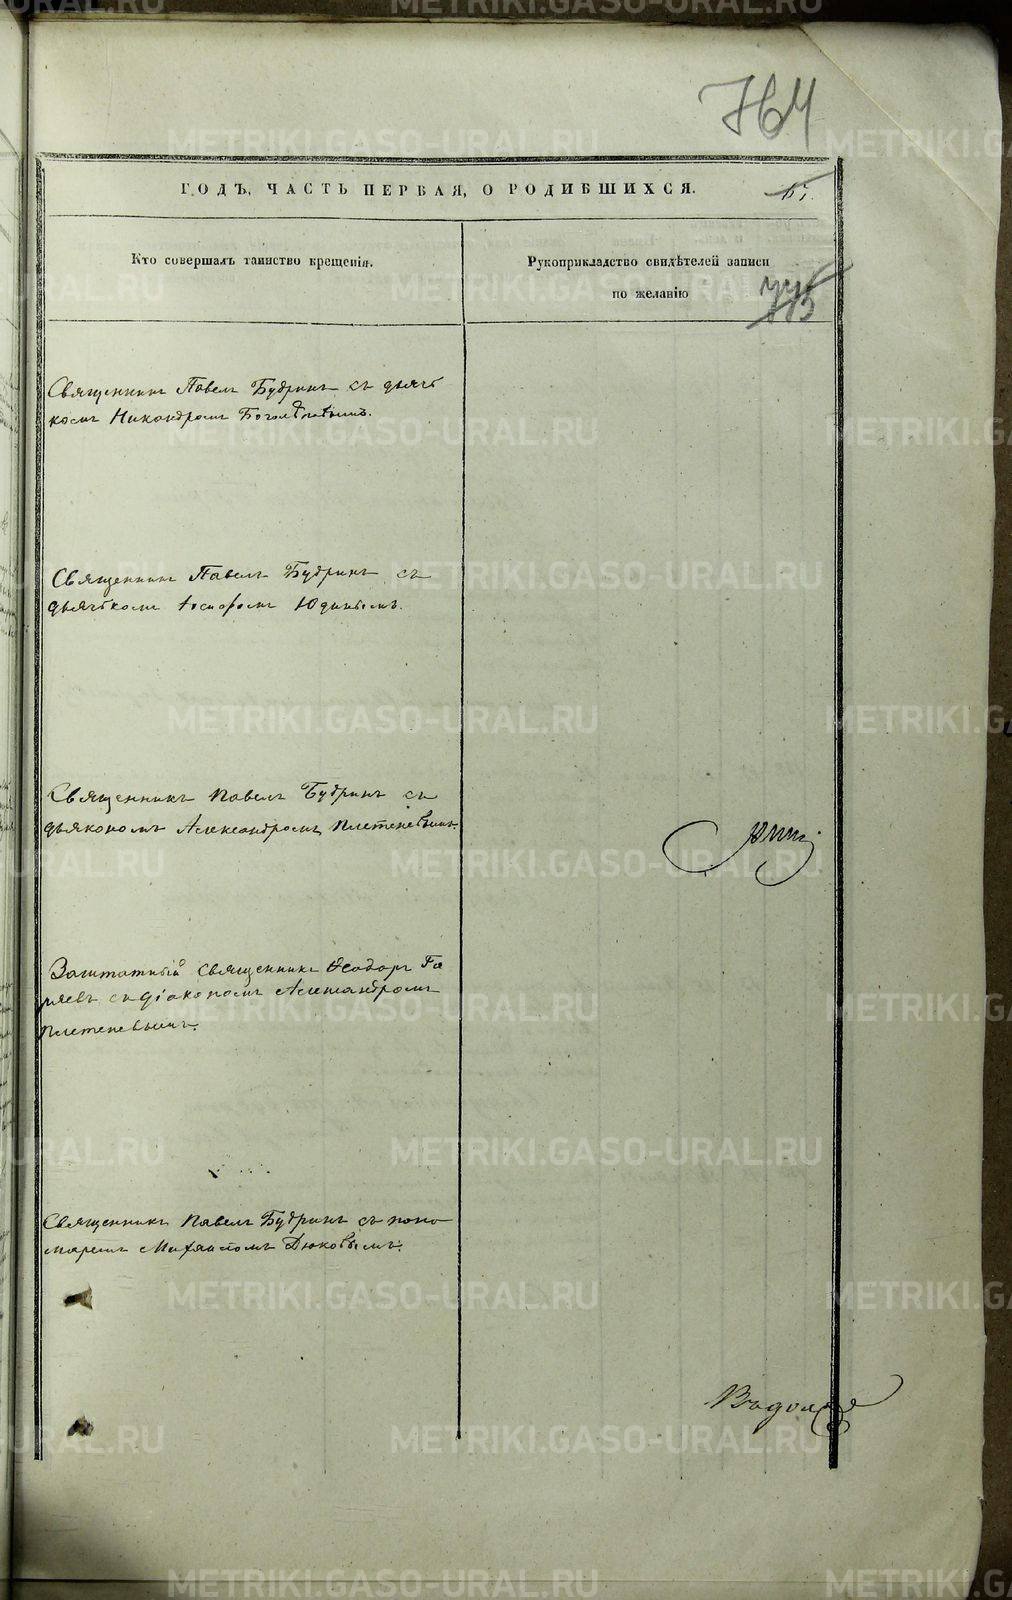 764
ГОДЪ, ЧАСТЬ ПЕРВАЯ, О РОДИВШИХСЯ.
Кто совершалъ таинство крещенія.
Рукоприкладство свидѣтелей записи
по желанію
Священникъ Павелъ Будринъ съ дьяч
комъ Никандромъ
Священникъ Павелъ Будринъ съ
дьячкомъ Юдинымъ.
Священникъ Павелъ Будринъ съ
дьякономъ Александромъ Плетеневымъ.
Заштатный священникъ Ѳеодоръ Га
ряевъ съ діакономъ Александромъ
Плетеневымъ.
Священникъ Павелъ Будринъ съ поно
маремъ Михаиломъ Дюковымъ.
METRIKI.GASO-URAL.RU